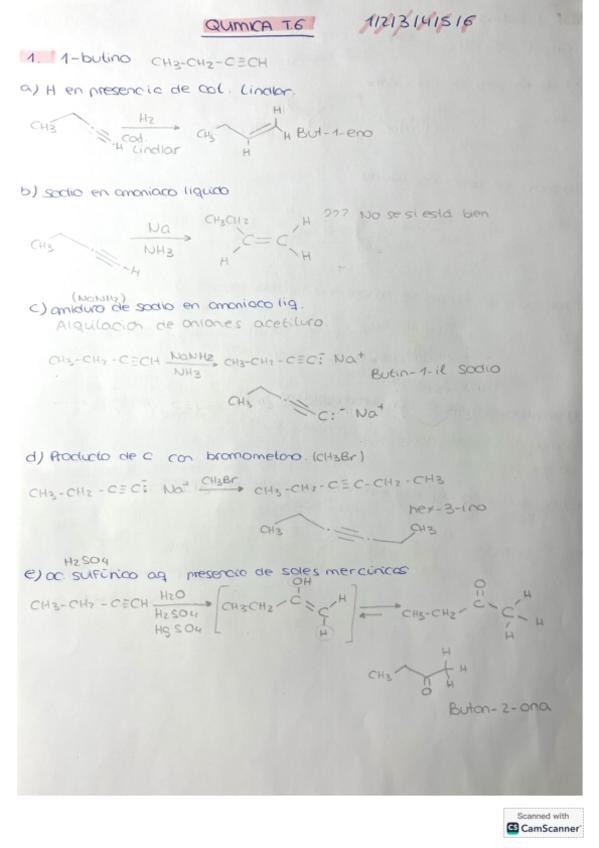 QUIMICA T.6 1/2/3/4/5/6
1. 1-butino CH3-CH2-C≡CH
a) H en presencia de cat. Lindlar.
CH3 H H2 cat. Lindlar CH3 H H H But-1-eno
b) sodio en amoniaco liquido
CH3 H Na NH3 CH3CH2 H C=C H H ??? No se si está bien
(NaNH2)
c) amiduro de sodio en amoniaco liq.
Alquilacion de aniones acetiluro.
CH3-CH2-C≡CH NaNH2 NH3 CH3-CH2-C≡C:⁻ Na+
Butin-1-il sodio
CH3 C:⁻ Na+
d) Producto de c con bromometano. (CH3Br)
CH3-CH2-C≡C:⁻ Na+ CH3Br CH3-CH2-C≡C-CH2-CH3
hex-3-ino
CH3 CH3
H2SO4
e) ac. sulfúrico aq presencia de sales mercúricas
CH3-CH2-C≡CH H2O H2SO4 HgSO4 [CH3CH2 OH C=C H H] CH3-CH2 O C C H H H
CH3 O H H H
Butan-2-ona
Scanned with
CS CamScanner